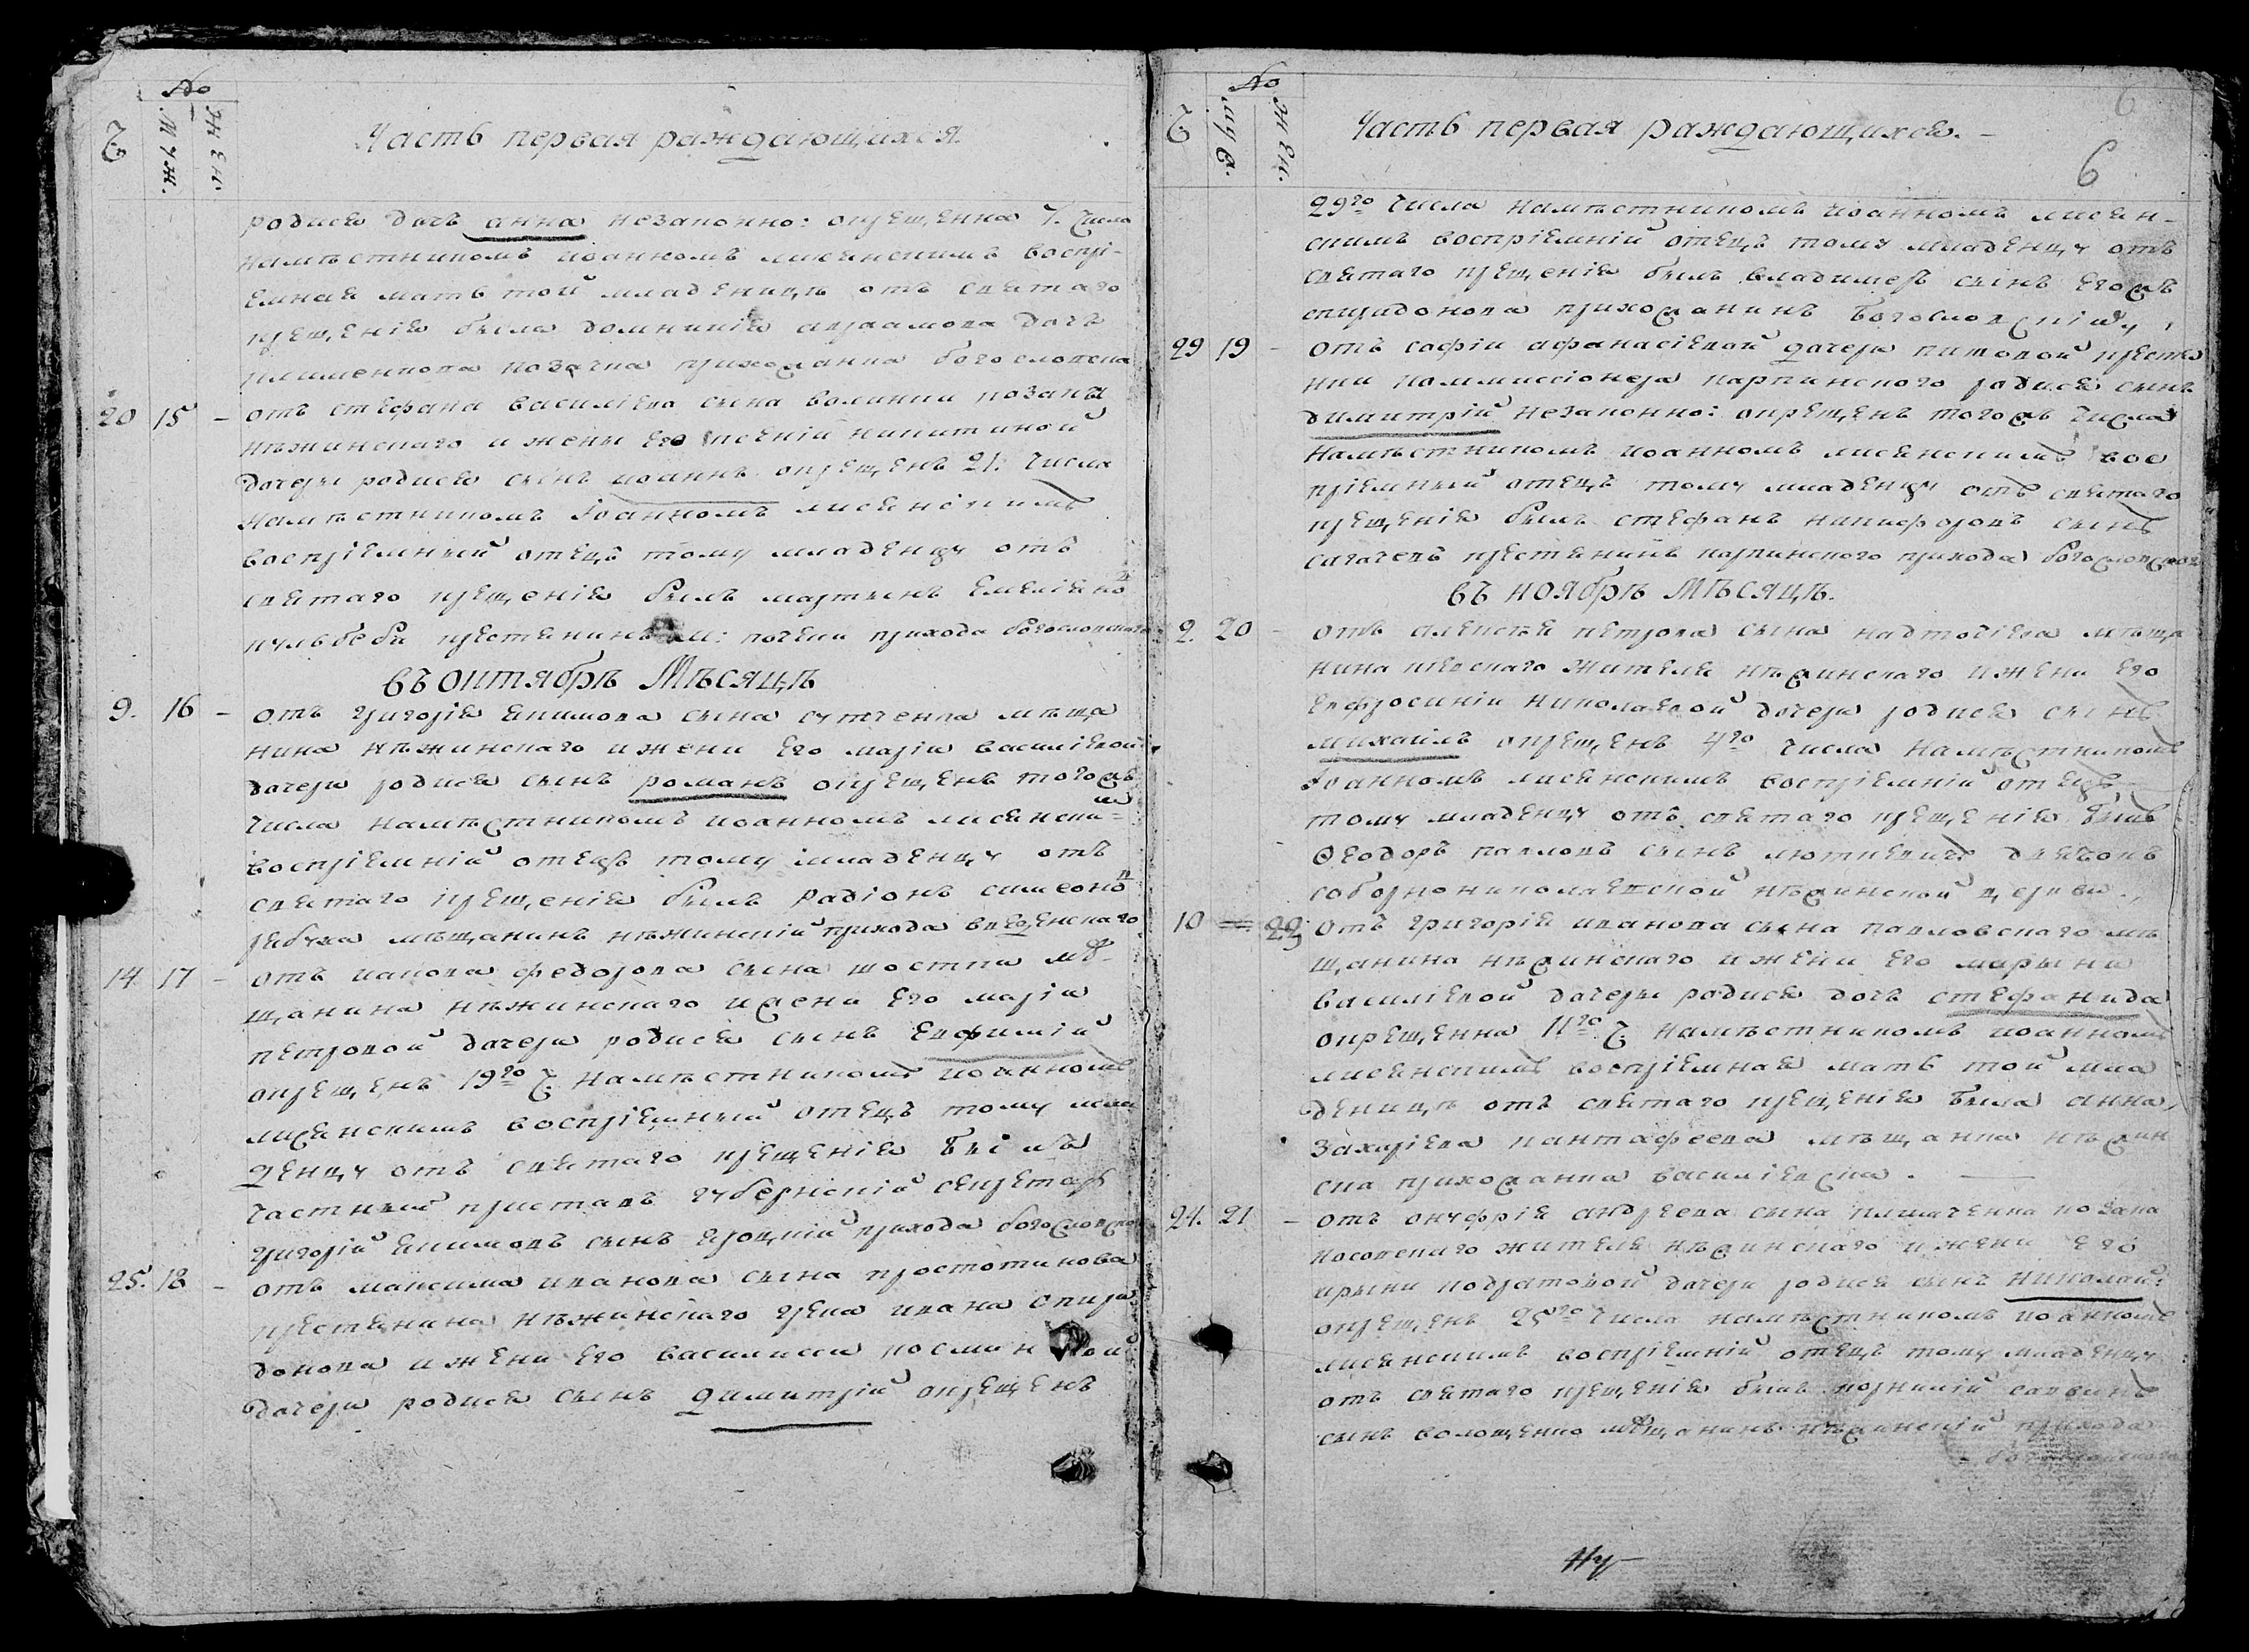 №
Ч. Муж. Жен.
Часть первая раждающихся.
родися дочь анна незаконно: окрещенна 7. числа
намѣстникомъ иоанномъ лисенскимъ воспрі-
емная мать той младеницѣ отъ святаго
крещенія была домникія авраамова дочь
козачка прихожанка богословска
20 15 – отъ стефана василіева сына волики козака
нѣжинскаго и жены его ксеніи никитиной
дочери родися сынъ иоаннъ окрещенъ 21. числа
намѣстникомъ Іоанномъ лисенскимъ
воспріемный отецъ тому младенцу отъ
святаго крещенія былъ мартынъ емеліяно
кульбеба крестянинъ прихода богословскаго
въ октябрѣ Мѣсяцѣ
9. 16 – отъ григорія якимова сына сутченка мѣща
нина нѣжинскаго и жены его маріи василіевой
дочери родися сынъ романъ окрещенъ тогожъ
числа намѣстникомъ иоанномъ лисенски=
воспріемній отецъ тому младенцу отъ
святаго крещенія былъ Радіонъ симеоно
рябуха мѣщанинъ нѣжинскій прихода введенскаго
14 17 – отъ иакова федорова сына шостки мѣ-
щанина нѣжинскаго и жени его маріи
петровой дочери родися сынъ евфимій
окрещенъ 19го Ч намѣстникомъ иоанномъ
лисенскимъ воспріемный отецъ тому мла
денцу отъ святаго крещенія былъ
частный приставъ губернскій секретарь
григорій якимовъ сынъ прихода богословско
25. 18 – отъ максима иванова сына простотинова
крестянина нѣжинскаго грека ивана спири
донова и жени его василиси косминой
дочери родися сынъ димитрій окрещенъ
№
Ч Муж. Жен.
Часть первая раждающихся. –
6
6
29го числа намѣстникомъ иоанномъ лисен-
скимъ воспріемній отецъ тому младенцу отъ
святаго крещенія былъ владимеръ сынъ егожъ
спиридонова прихожанинъ богословскій
29 19 – отъ софіи афанасіевой дочери китовой крестя
нки коммиссіонера карпинского родися сынъ
димитрій незаконно: окрещенъ тогожъ числа
намѣстникомъ иоанномъ лисенскимъ вос
пріемный отецъ тому младенцу отъ святаго
крещенія былъ стефанъ никифоровъ сынъ
сагачевъ крестянинъ карпинского прихода богословского
въ ноябрѣ Мѣсяцѣ.
2. 20 – отъ алексѣя петрова сына надточіева мѣща
нина кіевскаго жителя нѣжинскаго и жени его
евфросиніи николаевой дочери родися сынъ
михаилъ окрещенъ 4го числа намѣстникомъ
Іоанномъ лисенскимъ воспріемній отецъ
тому младенцу отъ святаго крещенія былъ
Феодоръ павловъ сынъ люткевичъ дяконъ
соборно николаевской нѣжинской церкви.
10 = 22 отъ григорія иванова сына павловского мѣ
щанина нѣжинскаго и жени его марьини
василіевой дочери родися дочь стефанида
окрещенна 11го Ч намѣстникомъ иоанномъ
лисенскимъ воспріемная мать той мла
деницѣ отъ святаго крещенія была анна
захаріева пантафеева мѣщанка нѣжин
ска прихожанка василіевска. –
24. 21 – отъ онуфрія андреева сына козака
носовского жителя нѣжинскаго и жени его
ирини кодратовой дочери родися сынъ николай:
окрещенъ 25го числа намѣстникомъ иоанномъ
лисенскимъ воспріемній отецъ тому младенцу
отъ святаго крещенія былъ корнилій саввинъ
сынъ волощенко мѣщанинъ нѣжинскій прихода
богословского